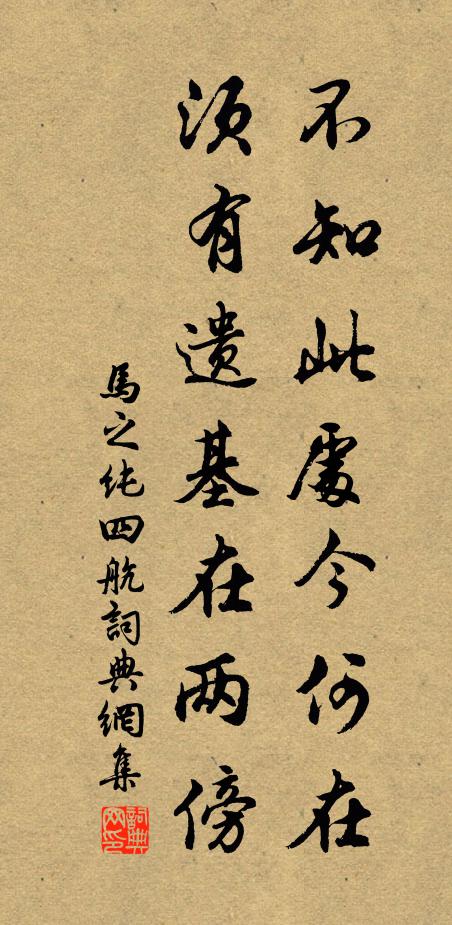 不知此處今何在
須有遺基在兩傍
馬之純四航詞典網集
詞典网印